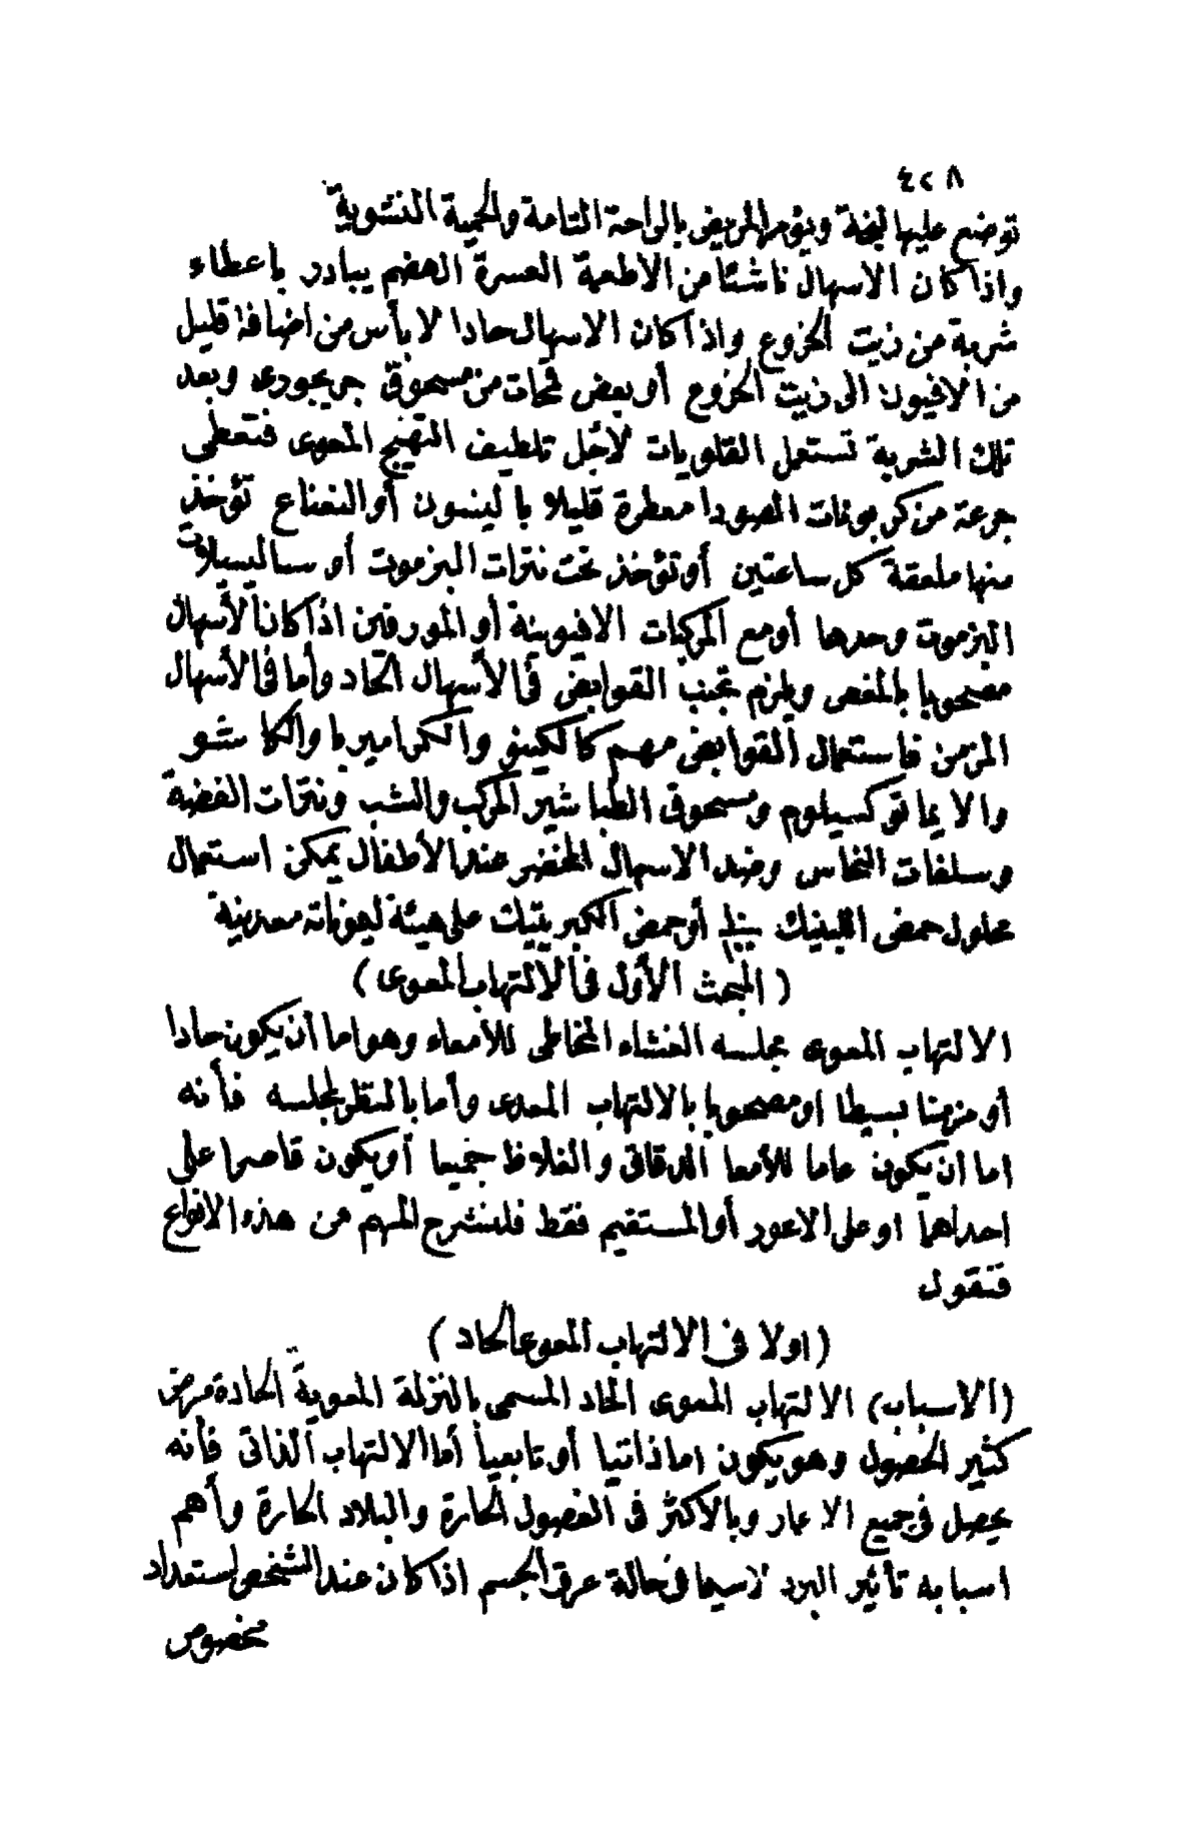 ٤٢٨
توضع عليها لبخة ويؤمر المريض بالراحة التامة والحمية النشوية
واذا كان الاسهال ناشئا من الاطعمة العسرة الهضم يبادر باعطاء
شربة من زيت الخروع واذا كان الاسهال حادا لا بأس من اضافة قليل
من الافيون الى زيت الخروع أو بعض قمحات من مسحوق جر يجورى وبعد
تلك الشربة تستعمل القلويات لاجل تلطيف التهيج المعوى فتعطى
جرعة من كربونات الصودا معطرة قليلا بالينسون أو النعناع تؤخذ
منها ملعقة كل ساعتين أو تؤخذ تحت نترات البزموت أو ساليسيلات
البزموت وحدها أو مع المركبات الافيونية أو المورفين اذا كان الأسهال
مصحوبا بالمغص ويلزم تجنب القوابض فى الأسهال الحاد وأما فى الأسهال
المزمن فاستعمال القوابض مهم كالكينو والكراميريا والكا شو
والايماتوكسيلوم ومسحوق الطباشير المركب والشب ونترات الفضة
وسلفات النحاس وضد الاسهال الخضر عند الأطفال يمكن استعمال
محلول حمض اللبنيك أو حمض الكبريتيك على هيئة ليموناته معدنية
(المبحث الأول فى الالتهاب المعوى)
الالتهاب المعوى مجلسه الغشاء المخاطى للأمعاء وهو اما أن يكون حادا
أو مزمنا بسيطا او مصحوبا بالالتهاب المعدى وأما بالنظر لمجلسه فأنه
اما ان يكون عاما للأمعا الدقاق والغلاظ جميعا أو يكون قاصرا على
احداهما او على الاعور أو المستقيم فقط فلنشرح المهم من هذه الانواع
فنقول
(اولا فى الالتهاب المعوى الحاد)
(الاسباب) الالتهاب المعوى الحاد المسمى بالنزلة المعوية الحادة مرض
كثير الحصول وهو يكون اما ذاتيا أو تابعيا أما الالتهاب الذاتى فأنه
يحصل فى جميع الاعمار وبالأكثر فى الفصول الحارة والبلاد الحارة وأهم
اسبابه تأثير البرد لاسيما فى حالة عرق الجسم اذا كان عند الشخص استعداد
مخصوص